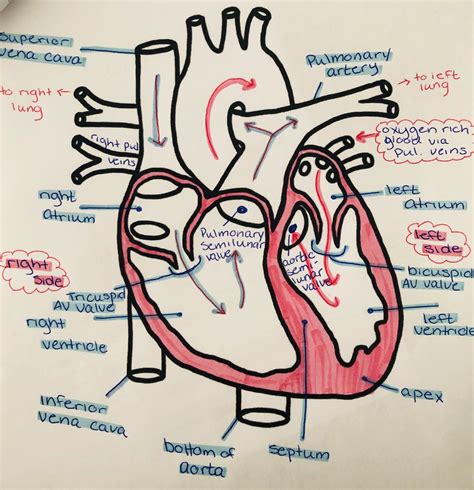 Superior
vena cava
Pulmonary
artery
to right
lung
to left
lung
right pul
veins
oxygen rich
blood via
pul. veins
right
atrium
left
atrium
Pulmonary
Semilunar
valve
aortic
sem-
lunar
valve
left
side
right
side
Tricuspid
AV valve
bicuspid
AV valve
right
ventricle
left
ventricle
apex
Inferior
vena cava
bottom of
aorta
septum